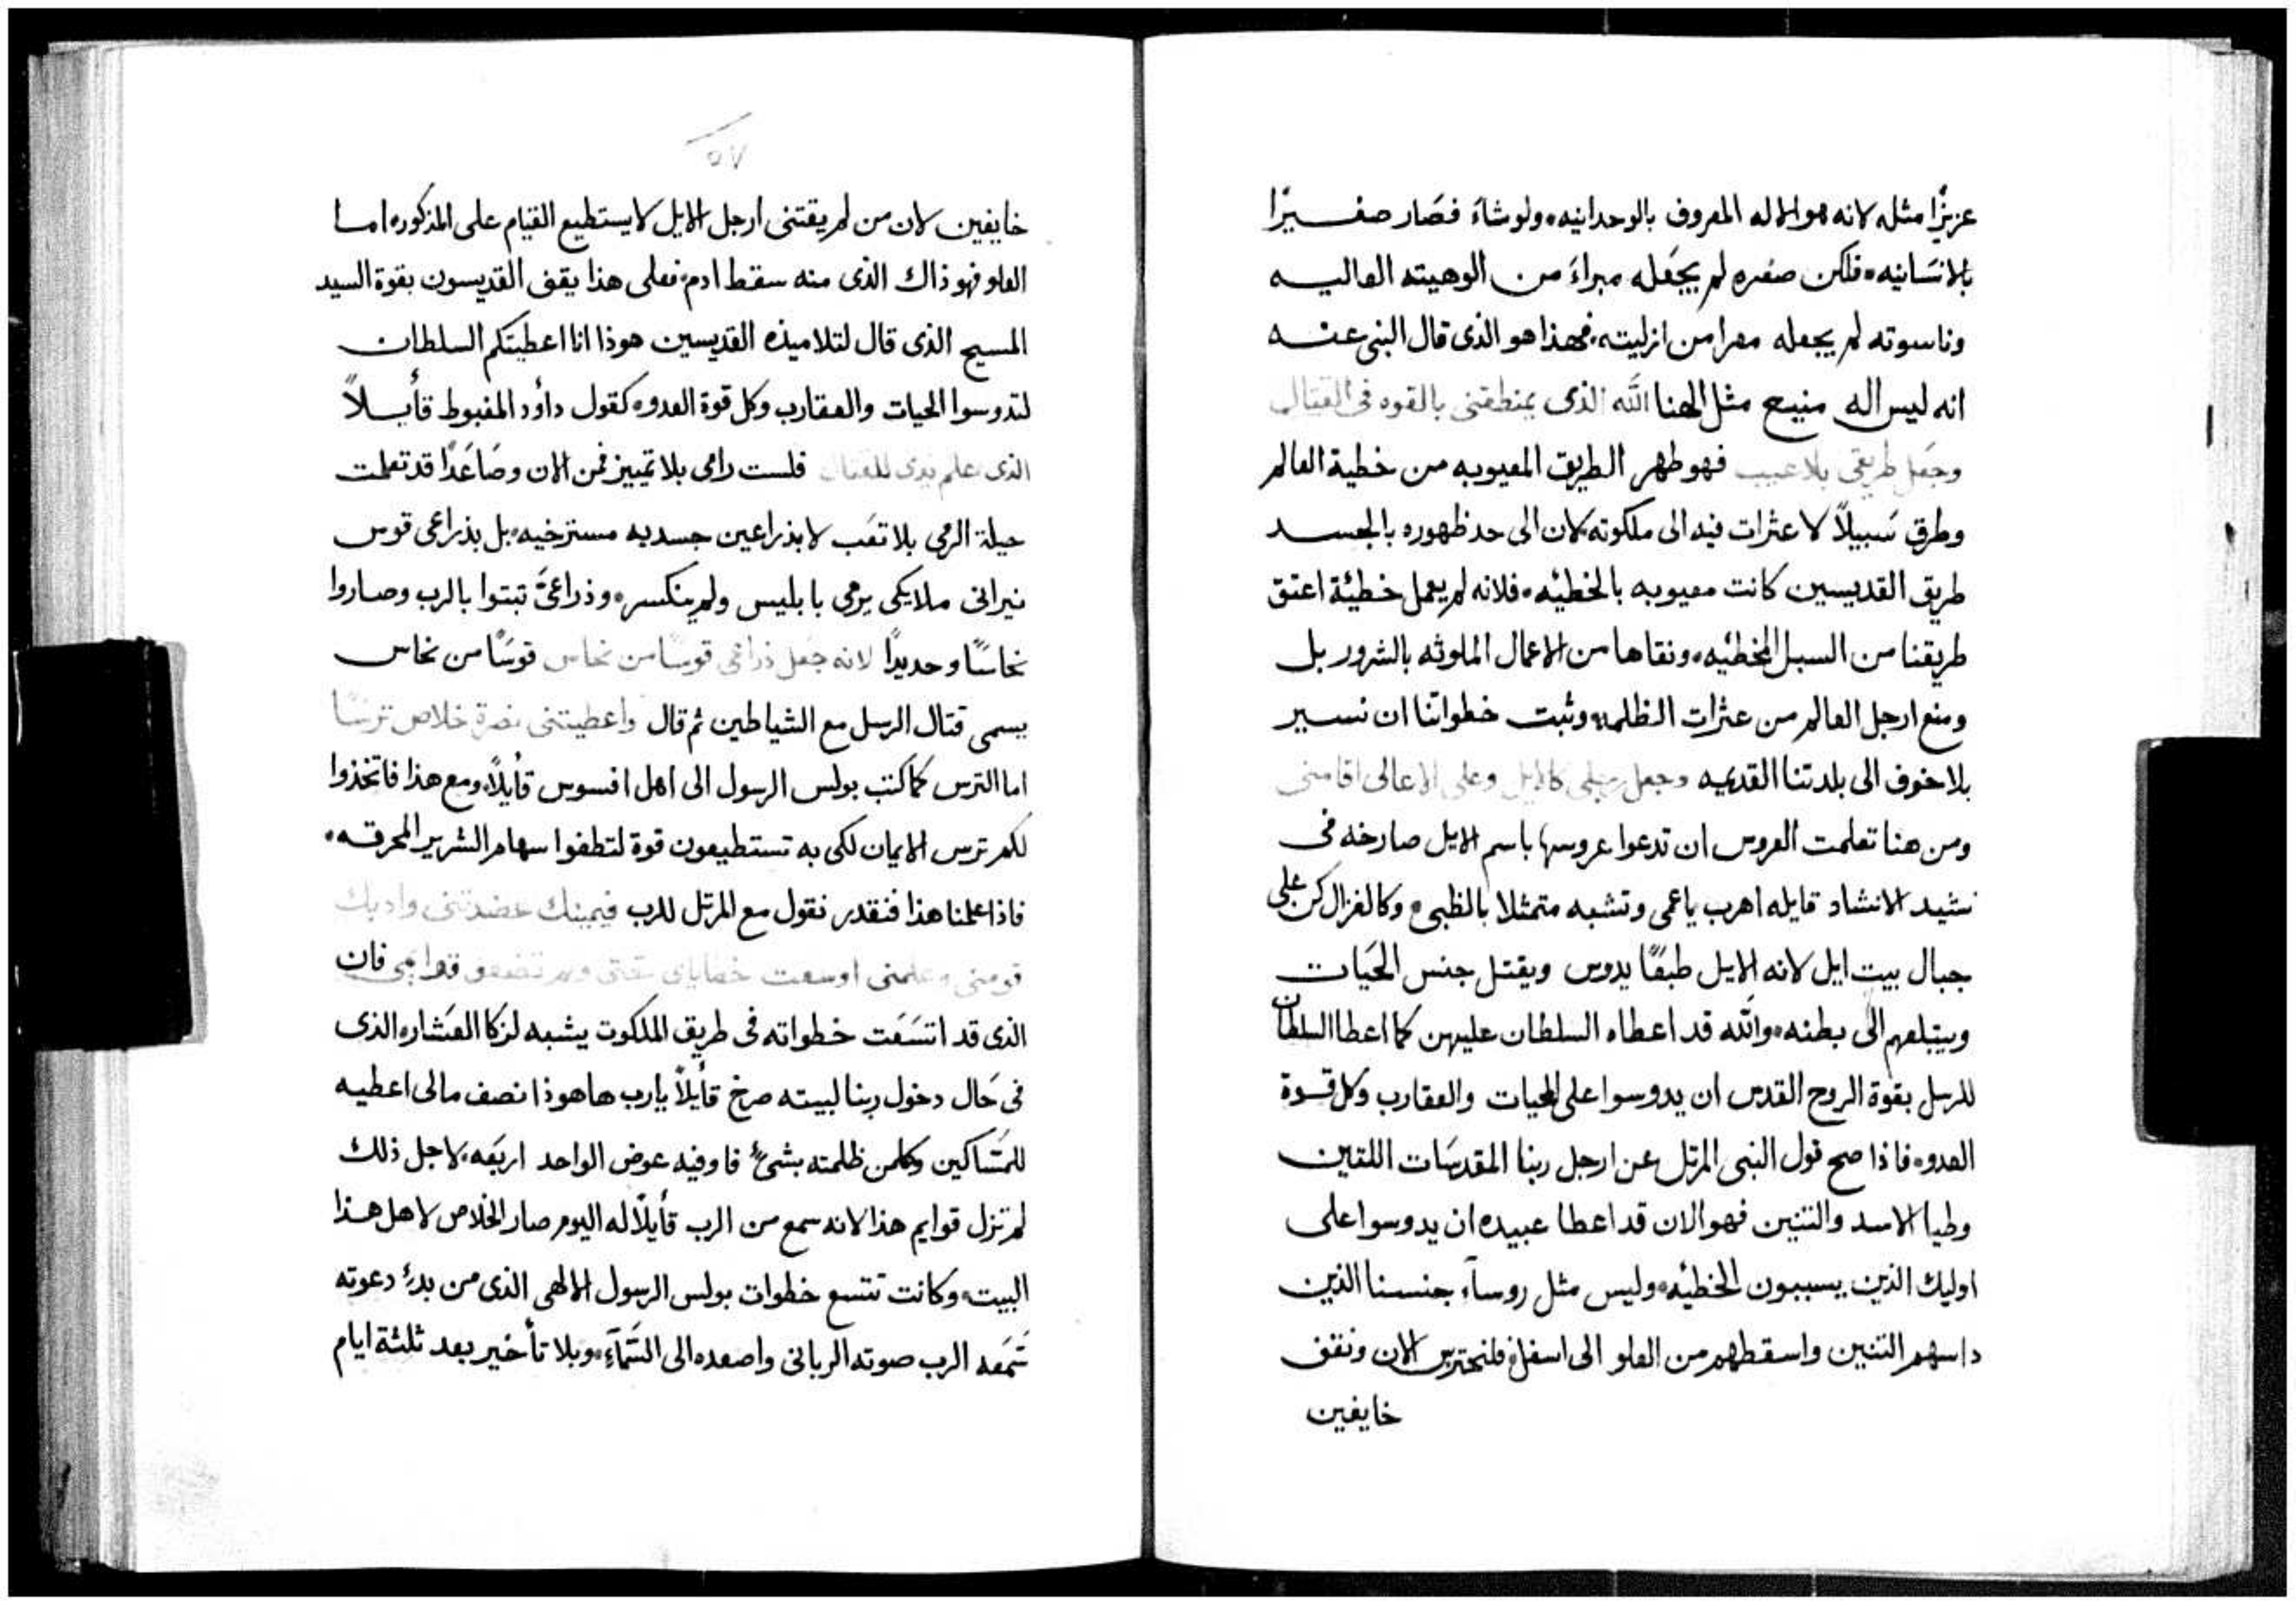 عزيزًا مثله لانه هو الاله المعروف بالوحدانيه، ولو شاء فصَار صغيرًا
بالانسَانيه، فلكن صغره لم يجعَله مبراءَ من الوهيته العاليه
وناسوته لم يجعله معرا من ازليته، فهذا هو الذى قال النبى عنه
انه ليس اله منيع مثل الهنا الله الذى يمنطقنى بالقوه فى القتال
وجعَل طريقى بلا عيب فهو طهر الطريق المعيوبه من خطية العالم
وطرق سَبيلاً لا عثرات فيه الى ملكوته لان الى حد ظهوره بالجسد
طريق القديسين كانت معيوبه بالخطيئه، فلانه لم يعمل خطيئة اعتق
طريقنا من السبل المخطئيه، ونقاها من الاعمال الملوثه بالشرور بل
ومنع ارجل العالم من عثرات الظلمه، وثبت خطواتنا ان نسير
بلا خوف الى بلدتنا القديمه وجعل رجلى كالايل وعلى الاعالى اقامنى
ومن هنا تعلمت العروس ان تدعوا عروسها باسم الايل صارخه فى
نشيد الانشاد قايله اهرب ياعمى وتشبه متمثلا بالظبى، وكالغزال كن على
جبال بيت ايل لانه الايل طبعًا يدوس ويقتل جنس الحَيات
ويبتلعهم الى بطنه، والله قد اعطاه السلطان عليهن كما اعطا السلطان
للرسل بقوة الروح القدس ان يدوسوا على الحيات والعقارب وكل قوة
العدو، فاذا صح قول النبى المرتل عن ارجل ربنا المقدسَات اللتين
وطيا الاسد والتنين فهو الان قد اعطا عبيده ان يدوسوا على
اوليك الذين يسببون الخطيئه، وليس مثل روساء جنسنا الذين
داسهم التنين واسقطهم من العلو الى اسفل، فلنحترس الان ونقف
خايفين
٥٧
خايفين لان من لم يقتنى ارجل الايل لا يستطيع القيام على المذكوره اما
العلو فهو ذاك الذى منه سقط ادم، فعلى هذا يقف القديسون بقوة السيد
المسيح الذى قال لتلاميذه القديسين هوذا انا اعطيتكم السلطان
لتدوسوا الحيات والعقارب وكل قوة العدو، كقول داؤد المغبوط قأيلاً
الذى علم يدى للقتال فلست رامى بلا تميز فمن الان وصَاعَدًا قد تعلمت
حيلة الرمى بلا تعَب لا بذراعين جسديه مسترخيه، بل بذراعى قوس
نيرانى ملايكى يرمى بابليس ولم ينكسر، وذراعىَّ تبتوا بالرب وصاروا
نحاسًا وحديدًا لانه جعَل ذراعى قوسًا من نحاس قوسًا من نحاس
يسمى قتال الرسل مع الشياطين ثم قال واعطيتنى نصرة خلاص ترسًا
اما الترس كما كتب بولس الرسول الى اهل افسوس قأيلاً، ومع هذا فاتخذوا
لكم ترس الايمان لكى به تستطيعون قوة لتطفوا سهام الشرير المحرقه،
فاذا علمنا هذا فنقدر نقول مع المرتل للرب فيمينك عضدتنى وادبك
قومنى وعلمنى اوسعت خطاياى تحتى ولم تضعف قوايمى فان
الذى قد اتسَعَت خطواته فى طريق الملكوت يشبه لزكا العَشار، الذى
فى حَال دخول ربنا لبيته صرخ قأيلاً يارب هاهوذا نصف مالى اعطيه
للمسَاكين وكلمن ظلمته بشىءٍ فاوفيه عوض الواحد اربَعه، لاجل ذلك
لم تزل قوايم هذا لانه سمع من الرب قأيلاً له اليوم صار الخلاص لاهل هذا
البيت، وكانت تتسع خطوات بولس الرسول الالهى الذى من بدءِ دعوته
سَمَعه الرب صوته الربانى واصعده الى السَّمآءِ، وبلا تأخير بعد ثلثة ايام